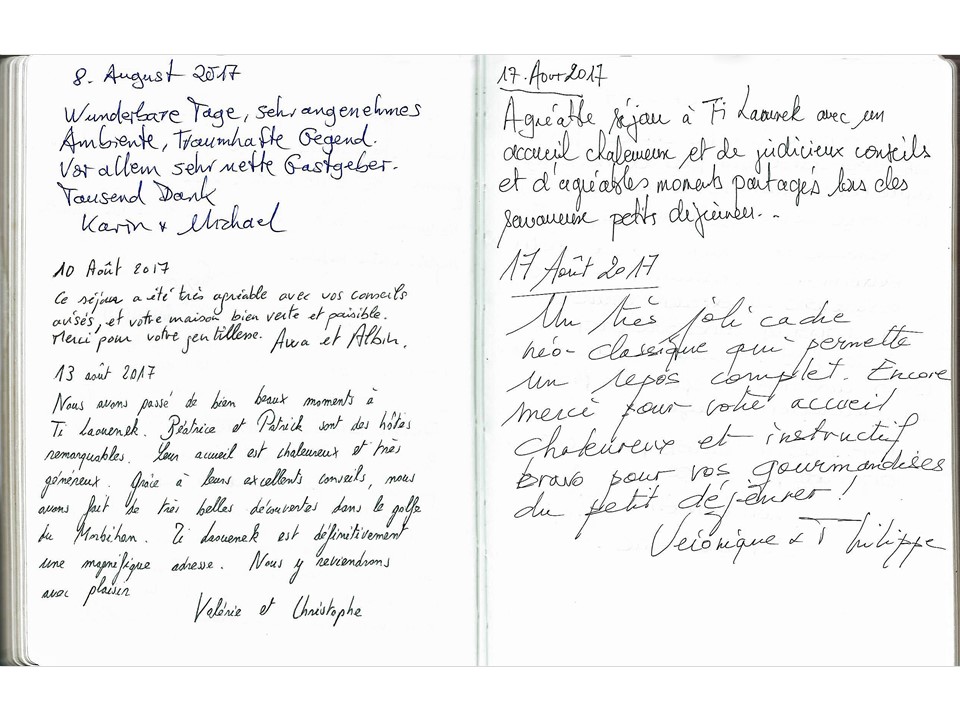 8. August 2017
Wunderbare Tage, sehr angenehmes
Ambiente, Traumhafte Gegend.
Vor allem sehr nette Gastgeber.
Tausend Dank
Karin & Michael
10 Août 2017
Ce séjour a été très agréable avec vos conseils
avisés, et votre maison bien verte et paisible.
Merci pour votre gentillesse. Awa et Albin.
13 août 2017
Nous avons passé de bien beaux moments à
Ti Laouenek. Béatrice et Patrick sont des hôtes
remarquables. Leur accueil est chaleureux et très
généreux. Grâce à leurs excellents conseils, nous
avons fait de très belles découvertes dans le golfe
du Morbihan. Ti Laouenek est définitivement
une magnifique adresse. Nous y reviendrons
avec plaisir
Valérie et Christophe
17. Aout 2017
Agréable séjour à Ti Laounek avec un
accueil chaleureux et de judicieux conseils
et d'agréables moments partagés lors des
savoureux petits déjeuner...
17 Août 2017
Un très joli cadre
néo-classique qui permette
un repos complet. Encore
merci pour votre accueil
chaleureux et instructif
bravo pour vos gourmandises
du petit déjeuner !
Véronique & Philippe